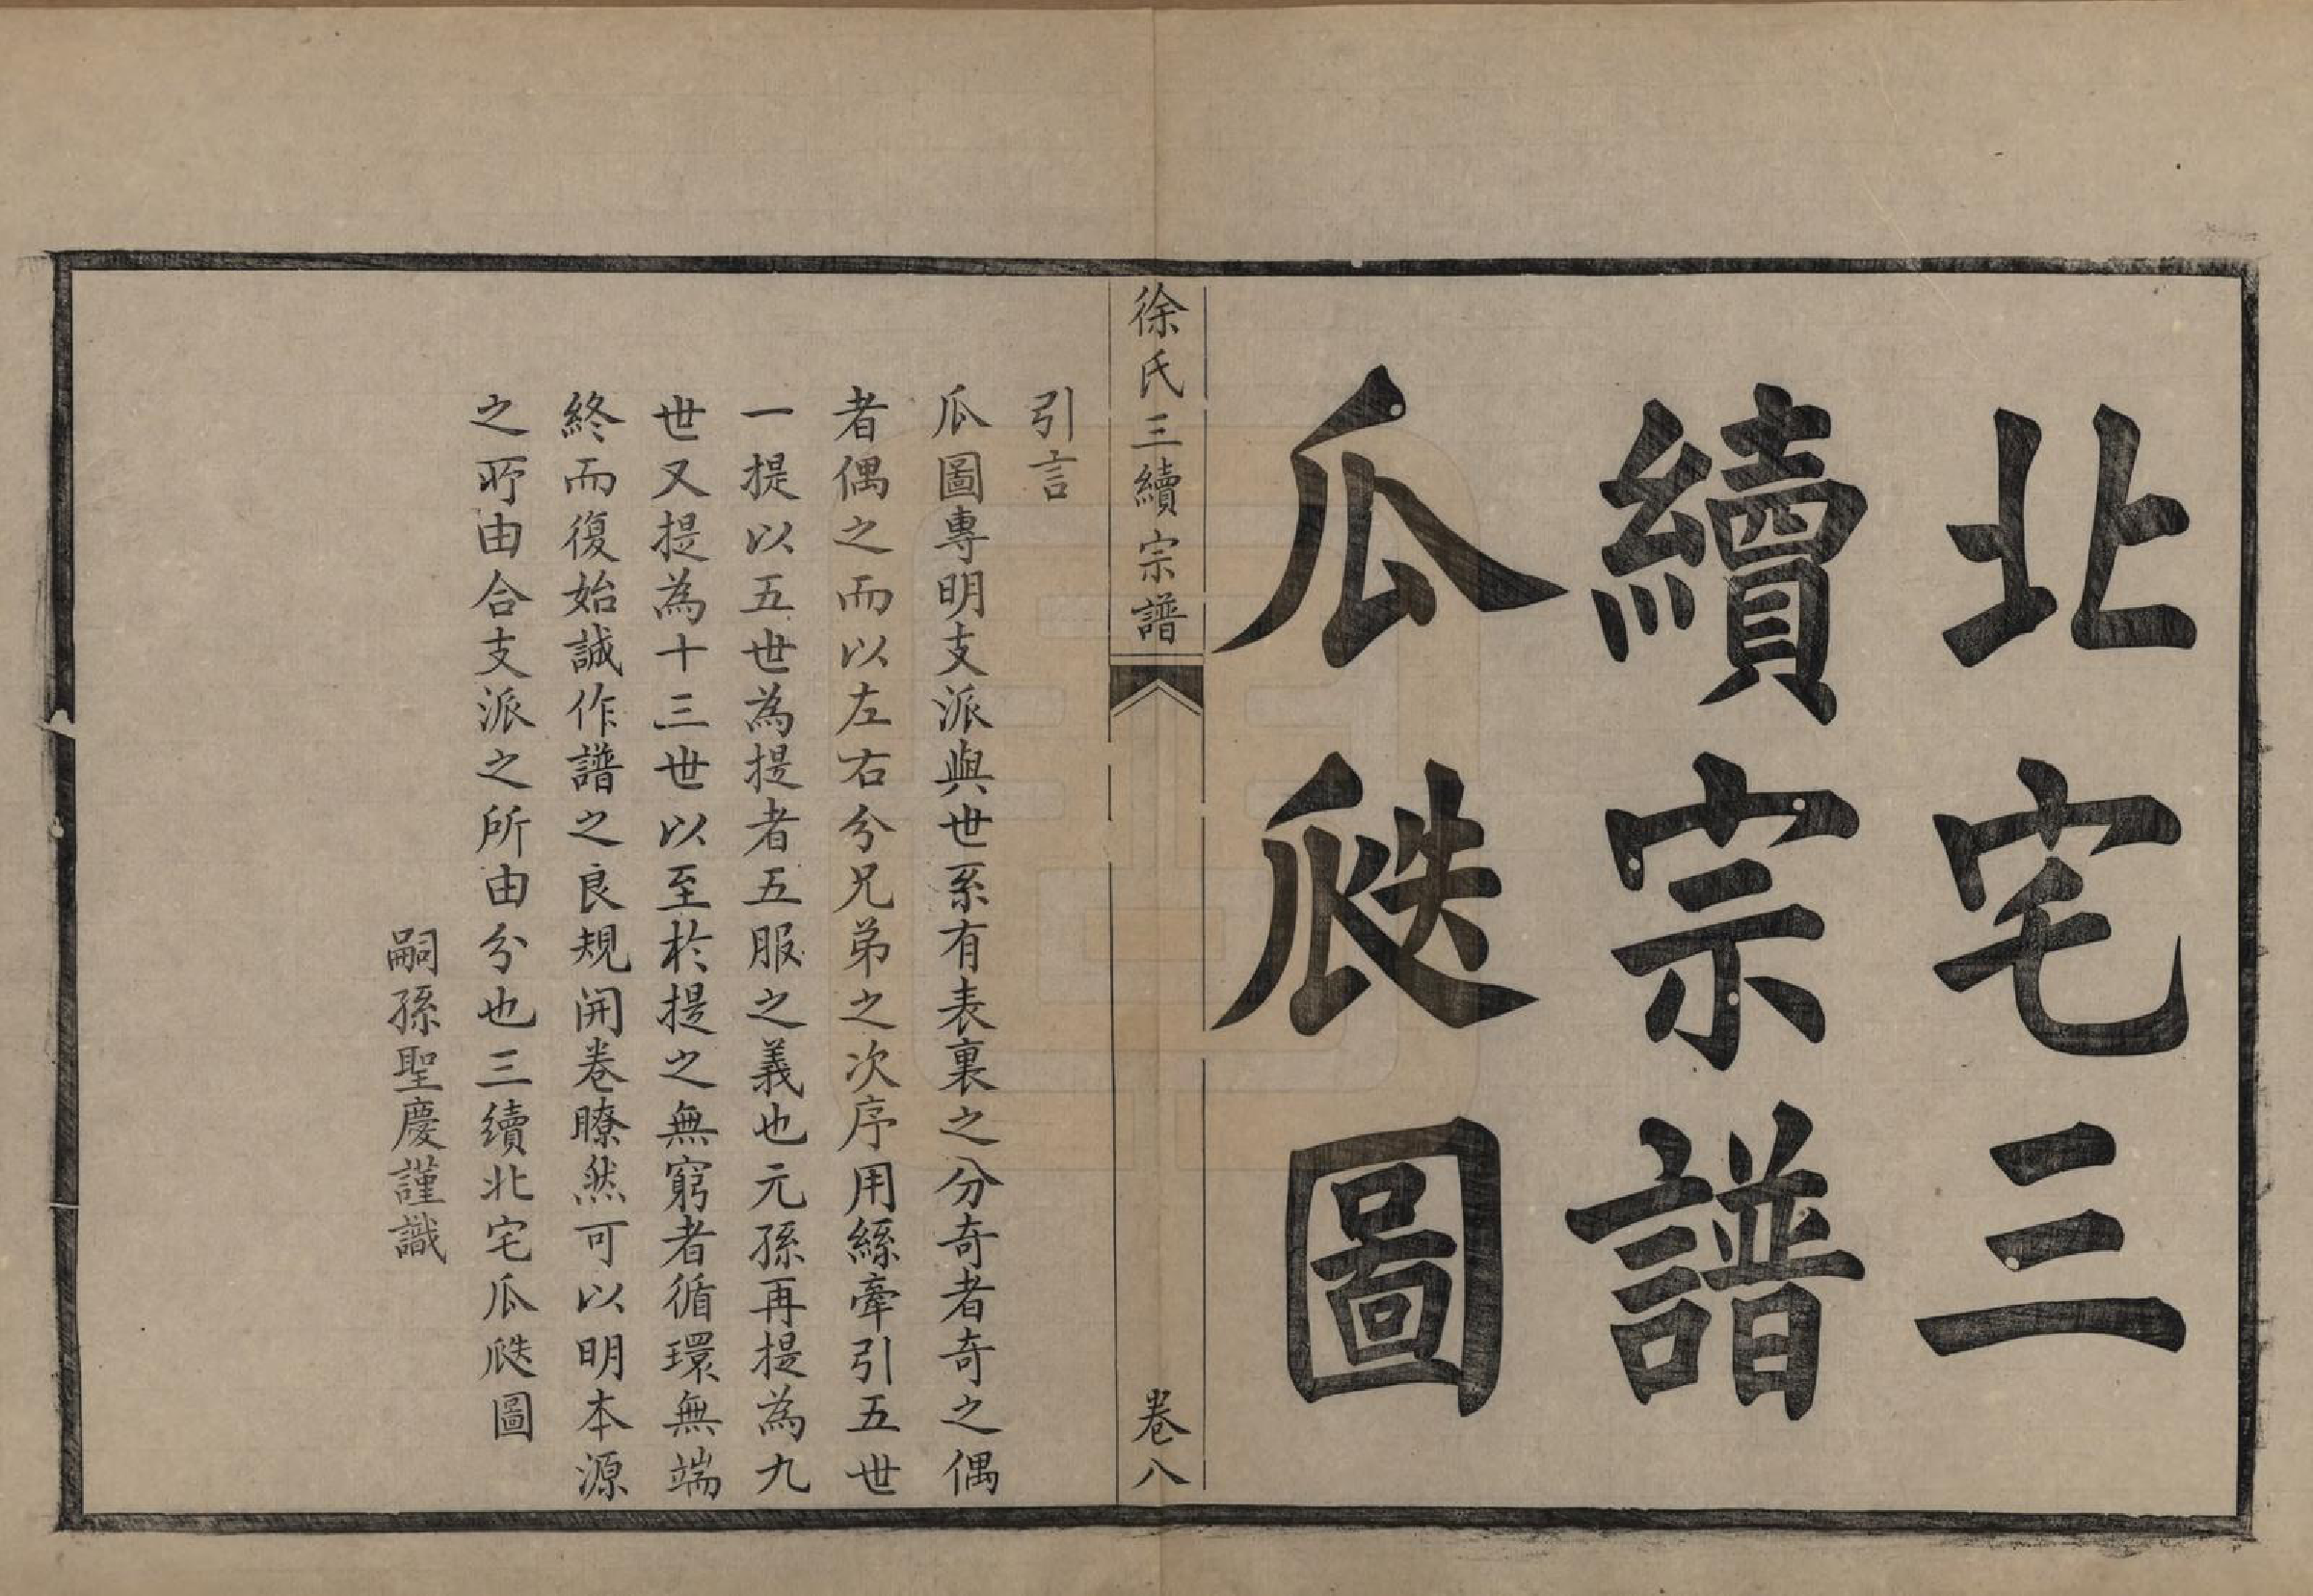 北宅三
續宗譜
瓜瓞圖
徐氏三續宗譜
卷八
引言
瓜圖專明支派與世系有表裏之分奇者奇之偶
者偶之而以左右分兄弟之次序用繇牽引五世
一提以五世為提者五服之義也元孫再提為九
世又提為十三世以至於提之無窮者循環無端
終而復始誠作譜之良規開卷瞭然可以明本源
之所由合支派之所由分也三續北宅瓜瓞圖
嗣孫聖慶謹識